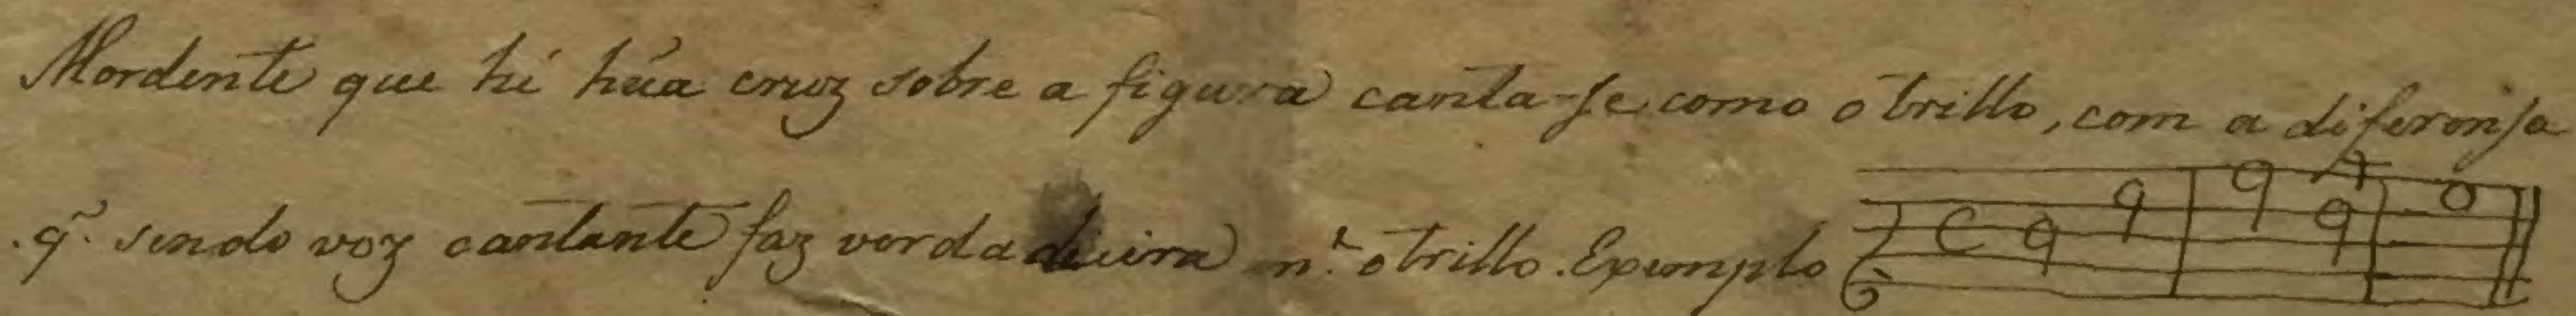 Mordente que hé húa cruz sobre a figura canta-se como o trillo, com a diferensa
.q̃. sendo voz cantante faz verdadeira n.ª o trillo. Exemplo